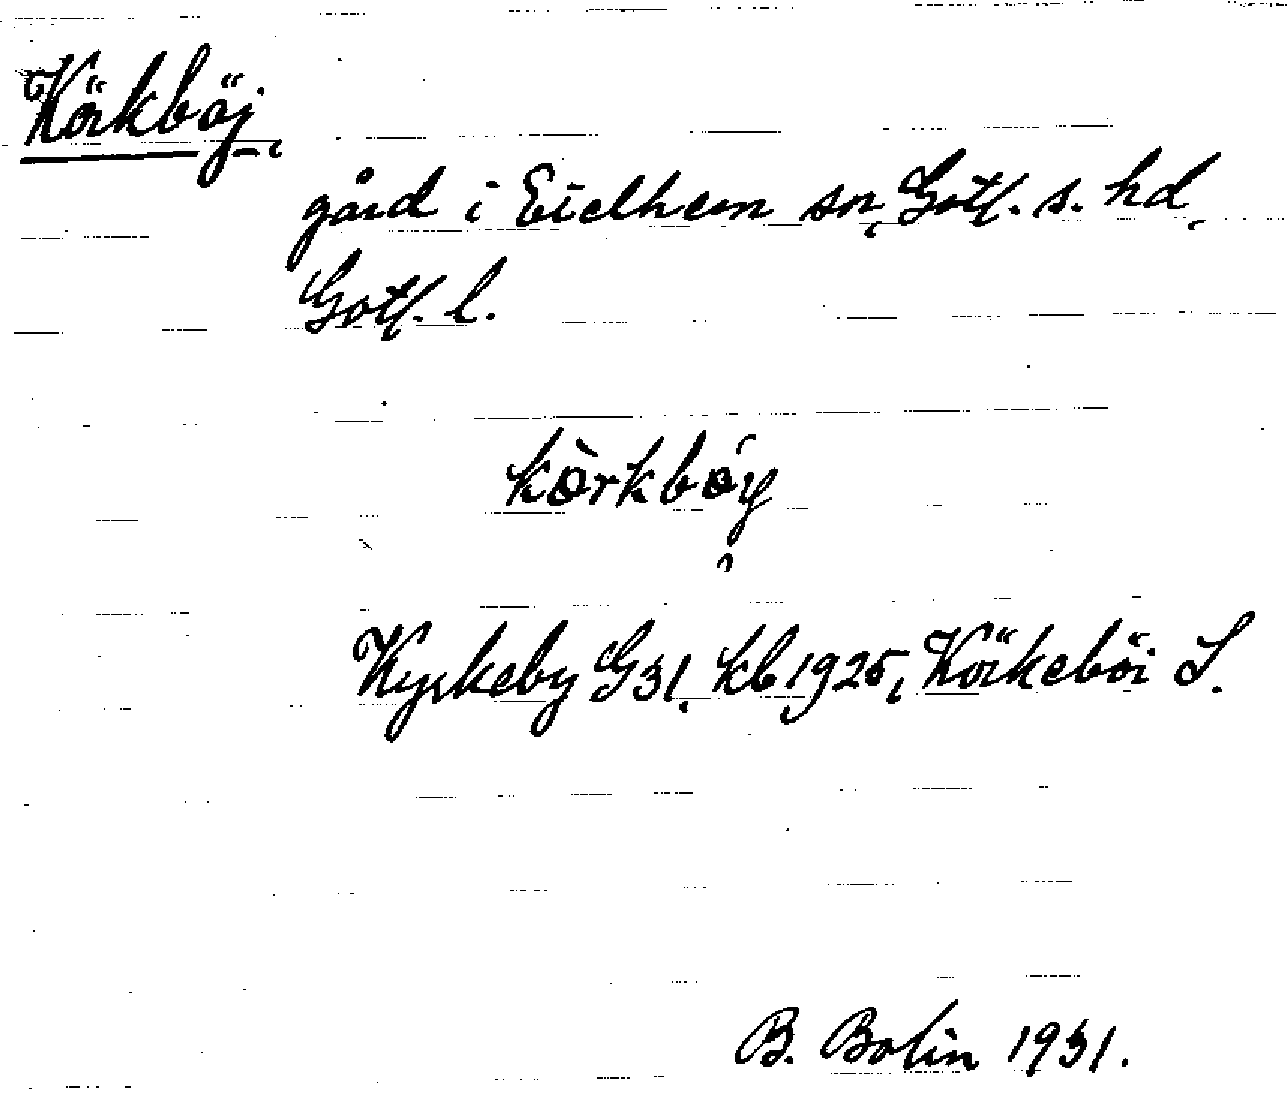 Körkböj,
gård i Etelhem sn, Gotl. s. hd,
Gotl. l.
kòrkbóy
Kyrkeby G31, kb 1925, Körkeböi S.
B. Bolin 1931.